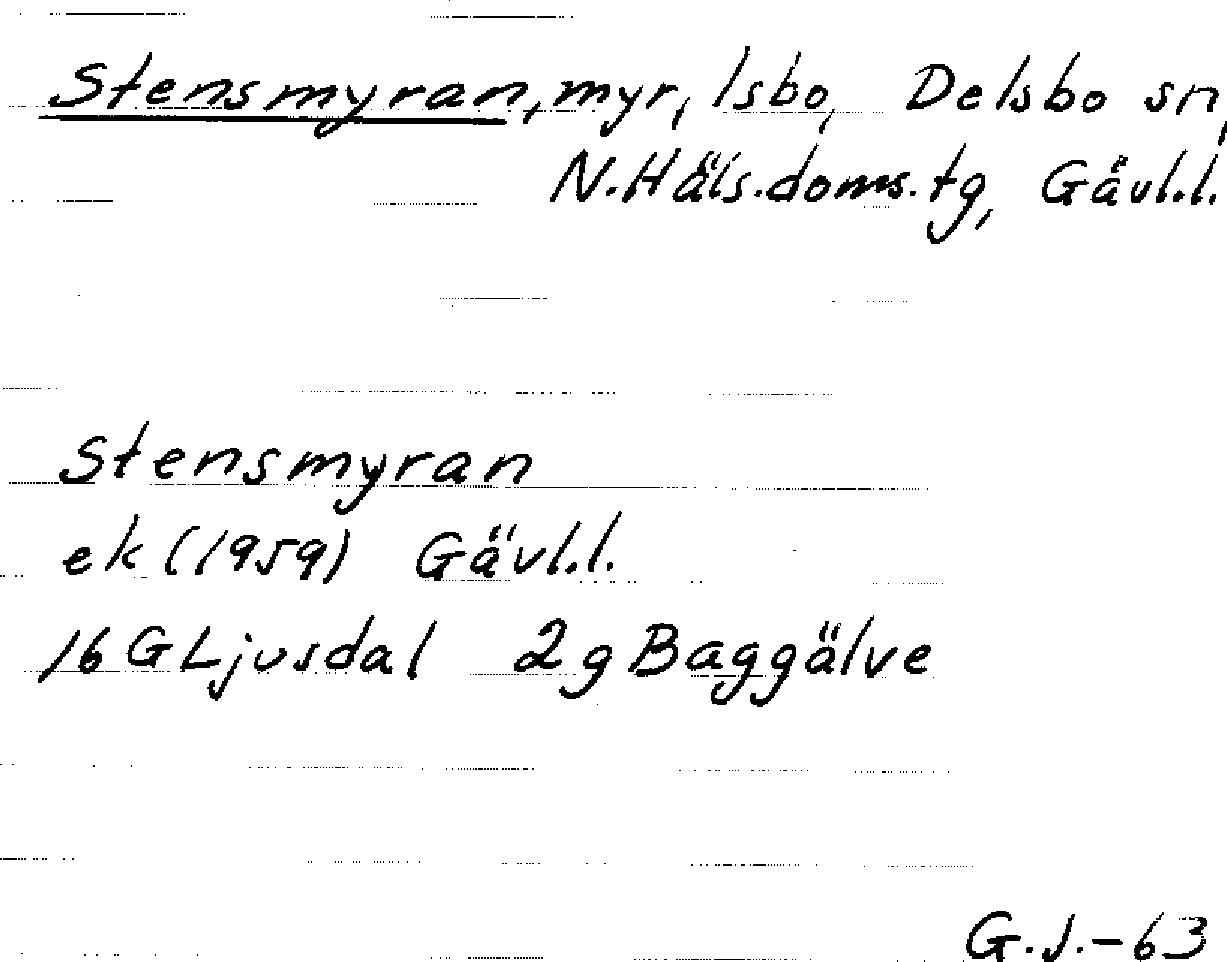 Stensmyran, myr, Isbo, Delsbo sn,
N. Häls. doms. tg, Gävl. l.
Stensmyran
ek (1959) Gävl. l.
16 G Ljusdal 2 g Baggälve
G. J. - 63